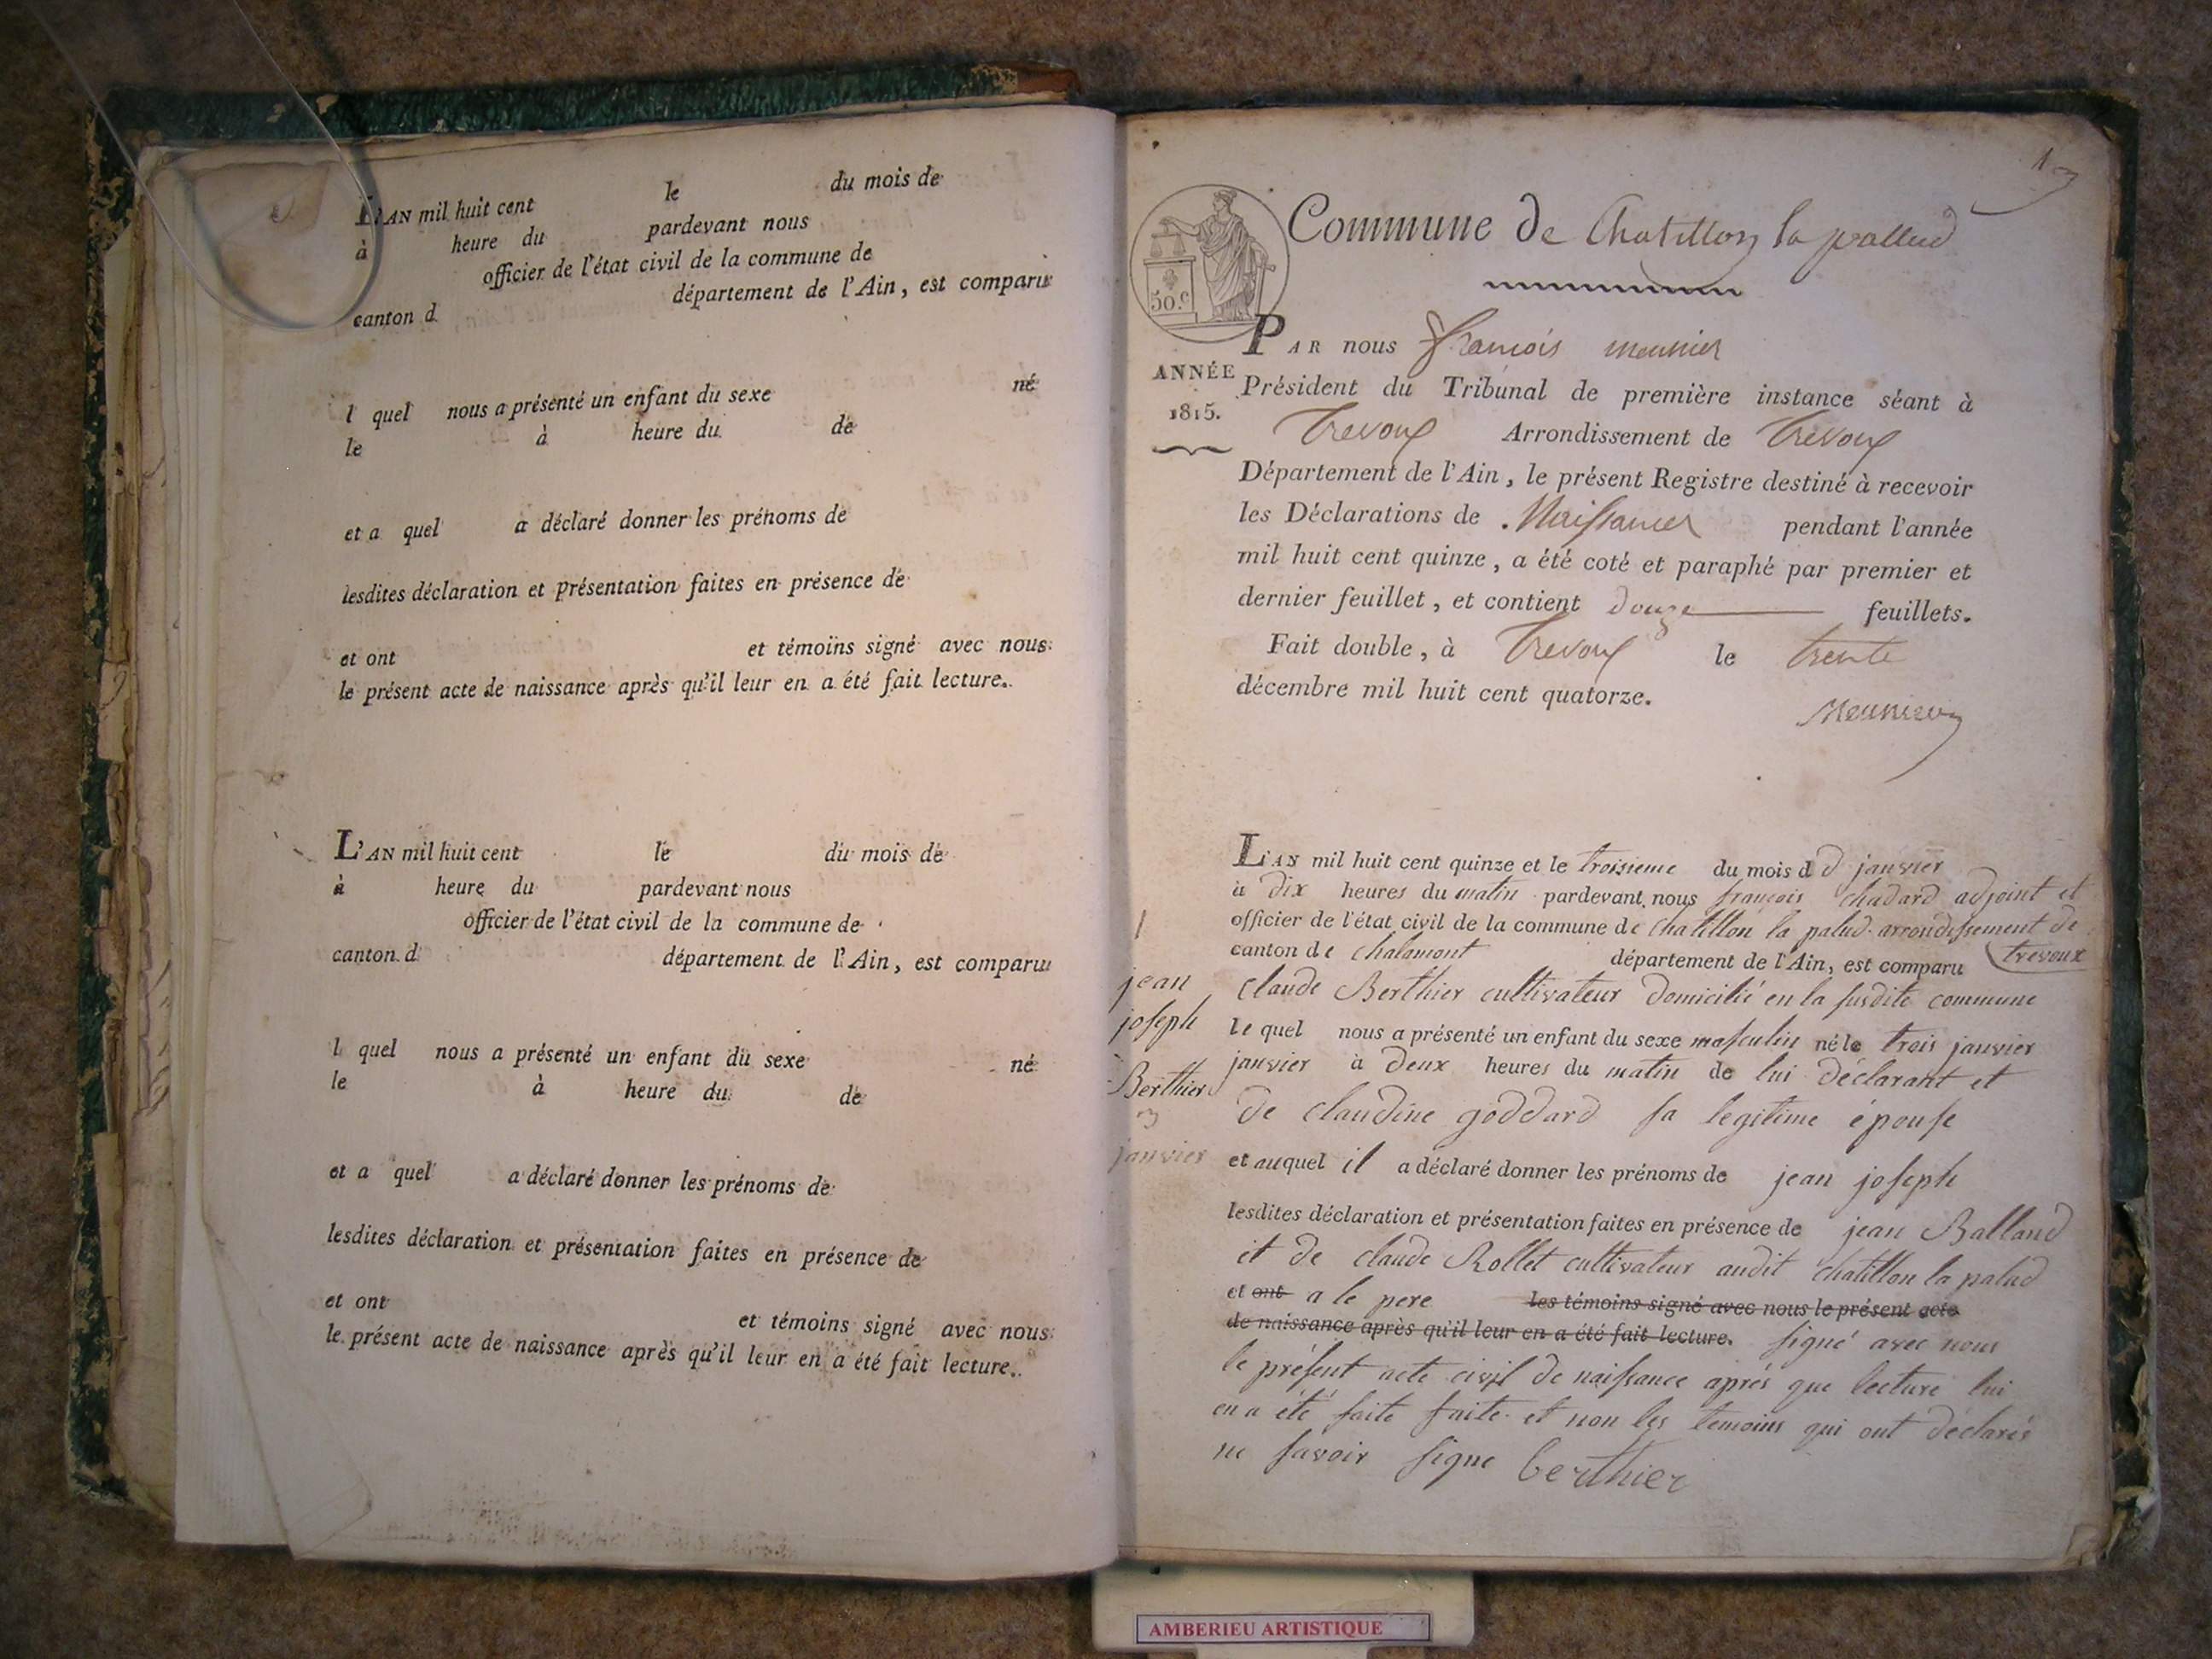 L'AN mil huit cent le du mois de
à heure du pardevant nous
officier de l'état civil de la commune de
canton d département de l'Ain, est comparu
l quel nous a présenté un enfant du sexe né
le à heure du de
et a quel a déclaré donner les prénoms de
lesdites déclaration et présentation faites en présence de
et ont et témoins signé avec nous
le présent acte de naissance après qu'il leur en a été fait lecture.
L'AN mil huit cent le du mois de
à heure du pardevant nous
officier de l'état civil de la commune de
canton d département de l'Ain, est comparu
l quel nous a présenté un enfant du sexe né
le à heure du de
et a quel a déclaré donner les prénoms de
lesdites déclaration et présentation faites en présence de
et ont et témoins signé avec nous
le présent acte de naissance après qu'il leur en a été fait lecture.
1
Commune de Chatillon la pallud
50.c
PAR nous françois meunier
ANNÉE
1815.
Président du Tribunal de première instance séant à
Trevoux Arrondissement de Trevoux
Département de l'Ain, le présent Registre destiné à recevoir
les Déclarations de Naissances pendant l'année
mil huit cent quinze, a été coté et paraphé par premier et
dernier feuillet, et contient douze feuillets.
Fait double, à Trevoux le trente
décembre mil huit cent quatorze.
Meunier
1
jean
joseph
Berthier
3
janvier
L'AN mil huit cent quinze et le troisieme du mois d d janvier
à dix heures du matin pardevant nous françois chadard adjoint et
officier de l'état civil de la commune de chatillon la palud arrondissement de
canton de chalamont département de l'Ain, est comparu trevoux
claude Berthier cultivateur domicilié en la susdite commune
le quel nous a présenté un enfant du sexe masculin né le trois janvier
janvier à deux heures du matin de lui déclarant et
de claudine goddard sa legitime épouse
et auquel il a déclaré donner les prénoms de jean joseph
lesdites déclaration et présentation faites en présence de jean Balland
et de claude Rollet cultivateur audit chatillon la palud
et ont a le pere les témoins signé avec nous le présent acte
de naissance après qu'il leur en a été fait lecture. signé avec nous
le présent acte civil de naissance après que lecture lui
en a été faite faite et non les temoins qui ont déclarés
ne savoir signe berthier
AMBERIEU ARTISTIQUE